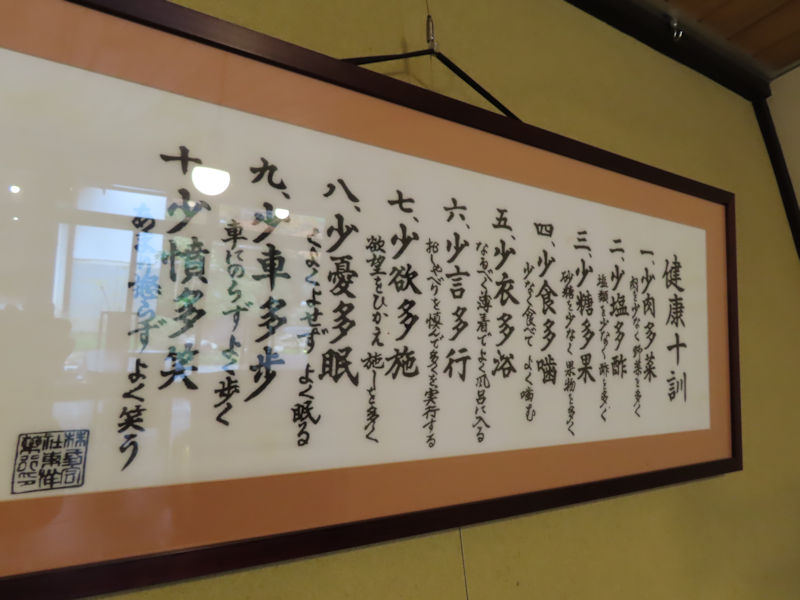 健康十訓
一、少肉多菜
肉を少なく野菜を多く
二、少塩多酢
塩類を少なく酢を多く
三、少糖多果
砂糖を少なく果物を多く
四、少食多噛
少なく食べてよく噛む
五、少衣多浴
なるべく薄着でよく風呂に入る
六、少言多行
おしゃべりを慎んで多くを実行する
七、少欲多施
欲望をひかえ施しを多く
八、少憂多眠
くよくよせずよく眠る
九、少車多歩
車にのらずよく歩く
十、少憤多笑
らずよく笑う